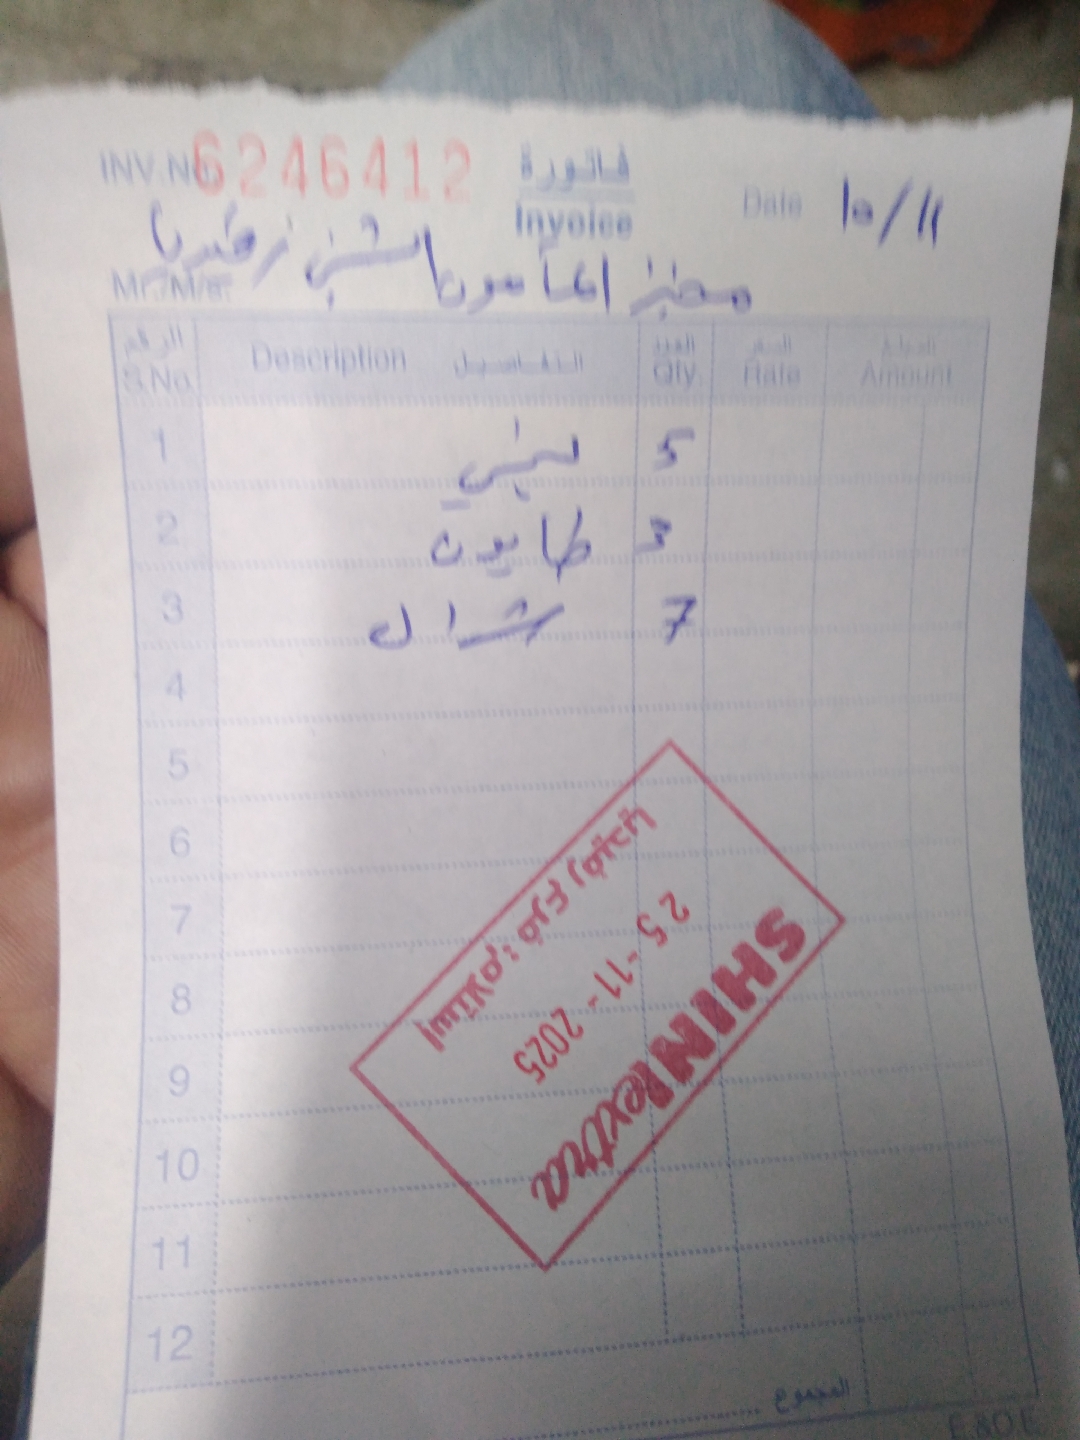 INV.No. 6246412
فاتورة
Invoice
Date 10/11
Mr./M/s. مخبز المأمون الشني زقرينا
الرقم التفاصيل العدد السعر المبلغ
S.No. Description Qty. Rate Amount
1 لبني 5
2 طابون 3
3 شال 7
4
5
6
7
8
9
10
11
12
المجموع
E.&O.E
SHINIextra
25-11-2025
استلام: فرع